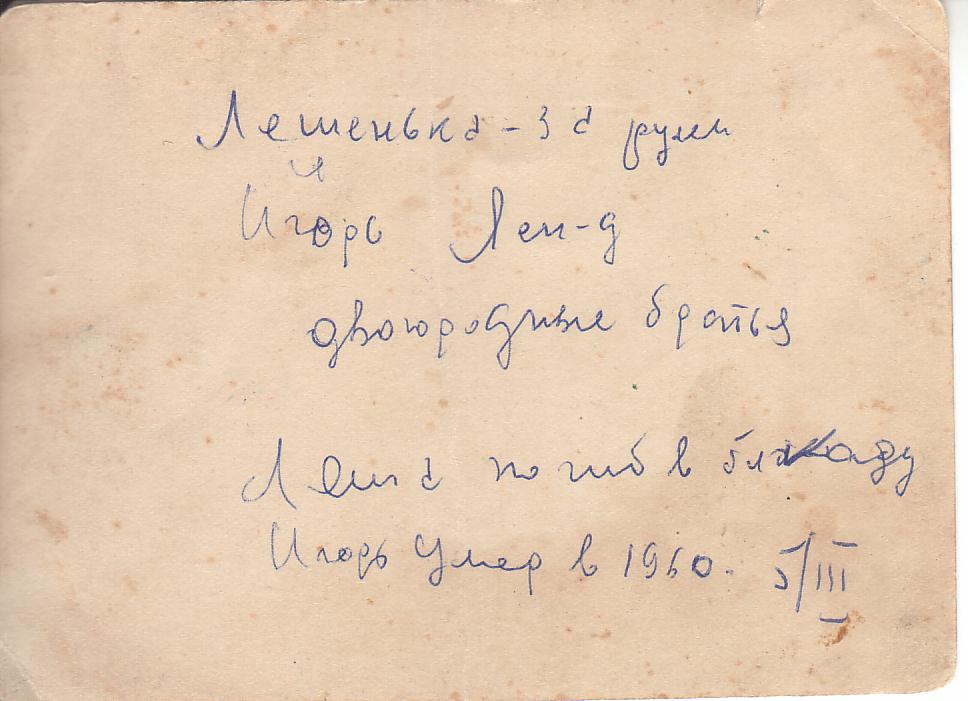 Лешенька - за рулем
й
Игорь Лен-д
двоюродные братья
Леша погиб в блокаду
Игорь умер в 1960. 5/III